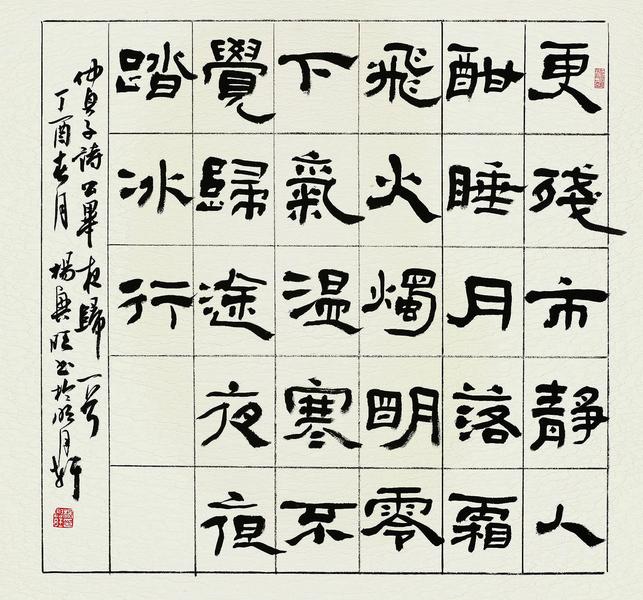 更殘市靜人
酣睡月落霜
飛火燭明零
下氣温寒不
覺歸途夜夜
踏冰行
仲貞子詩公畢夜歸一首
丁酉春月 楊興旺书於明月軒